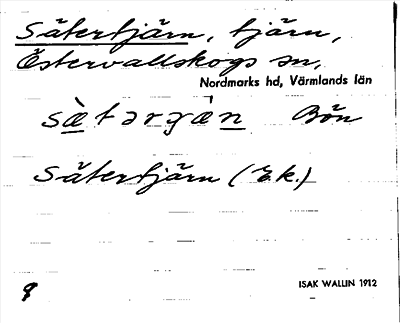 Sätertjärn, tjärn,
Östervallskogs sn,
Nordmarks hd, Värmlands län
sæ̀tərʒæ̀n Bön
Sätertjärn (E.k.)
ISAK WALLIN 1912